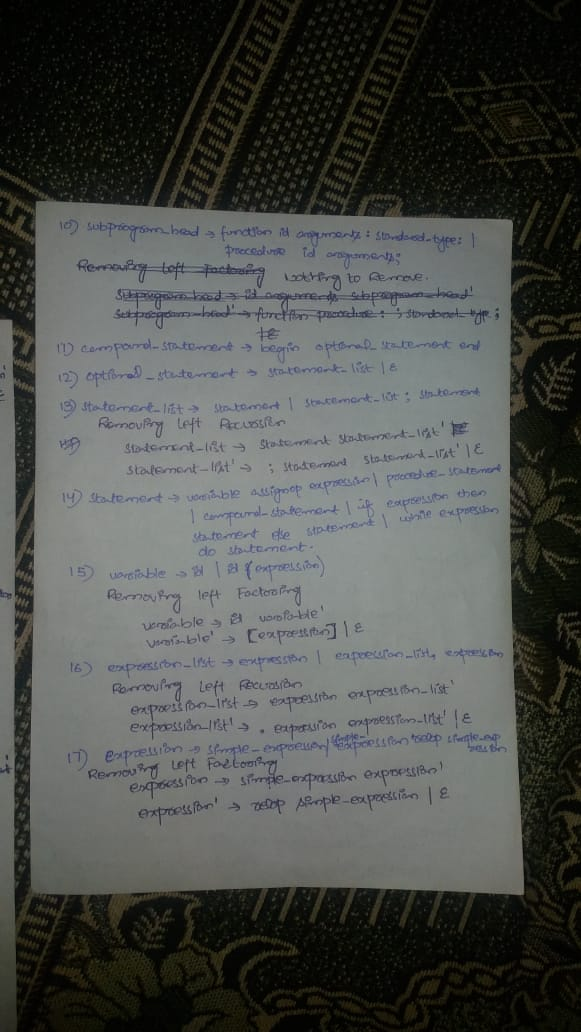 10) subprogram_head → function id arguments : standard-type; |
procedure id arguments;
Removing Left Factoring Nothing to Remove.
Subprogram head → id arguments subprogram-head'
Subprogram-head' → function procedure : ; standard type ;
11) compound-statement → begin optional_statement end
12) optional_statement → statement-list | ε
13) statement-list → statement | statement-list ; statement
Removing Left Recussion
statement-list → statement statement-list'
statement-list' → ; statement statement-list' | ε
14) statement → variable assignop expression | procedure-statement
| compound-statement | if expression then
statement else statement | while expression
do statement.
15) variable → id | id [expression]
Removing left Factoring
variable → id variable'
variable' → [expression] | ε
16) expression-list → expression | expression_list, expression
Removing Left Recussion
expression-list → expression expression-list'
expression-list' → , expression expression-list' | ε
17) expression → simple-expression | simple-expression relop simple-expression
Removing Left Factoring
expression → simple-expression expression'
expression' → relop simple-expression | ε